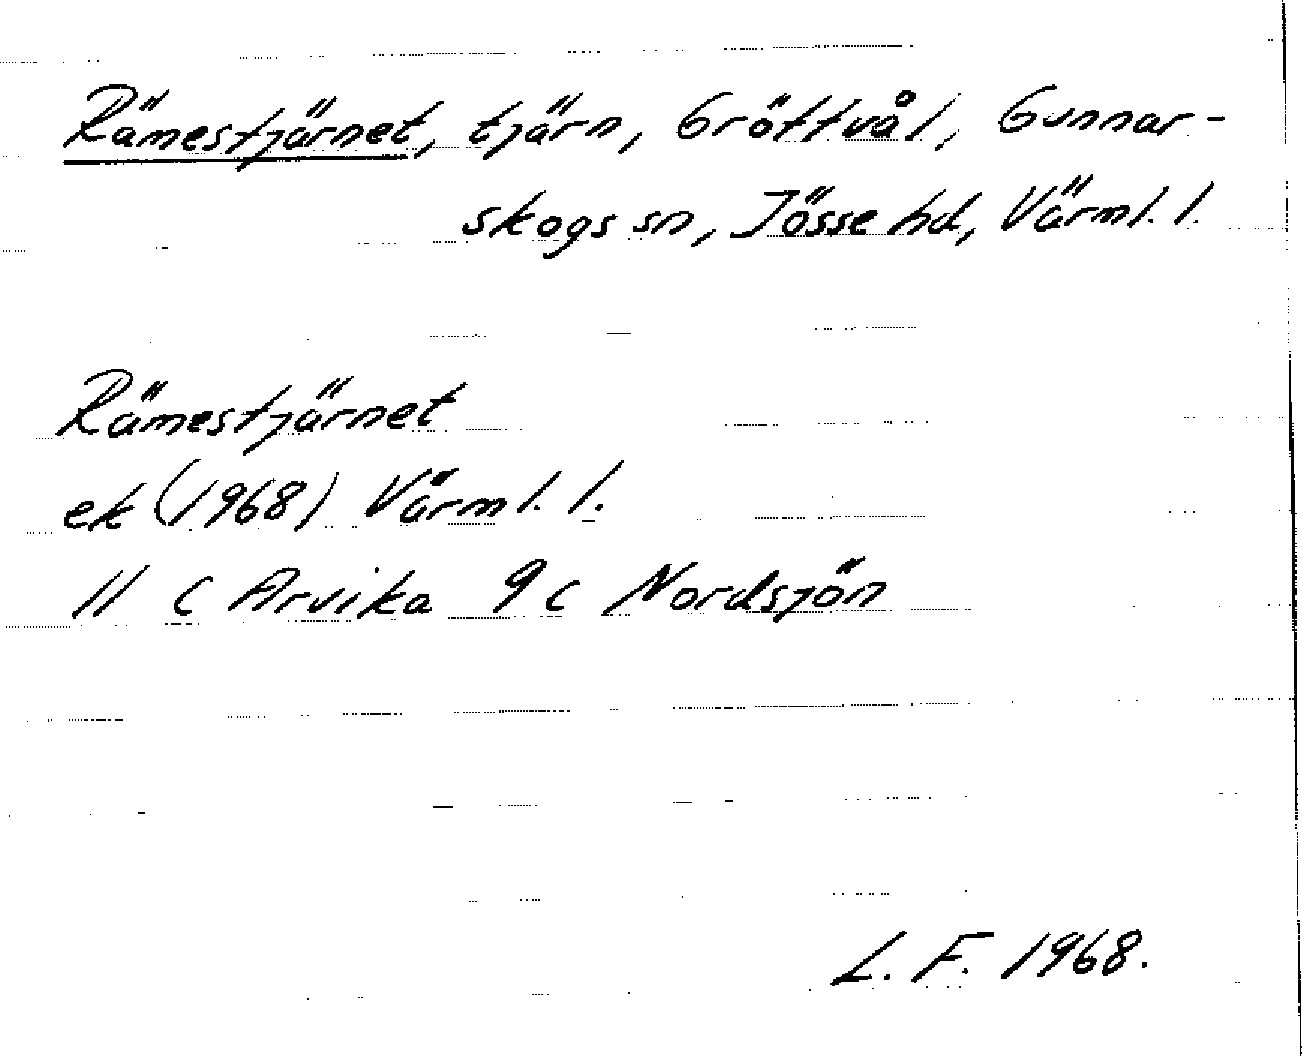 Rämestjärnet, tjärn, Gröttvål, Gunnar-
skogs sn, Jösse hd, Värml. l.
Rämestjärnet
ek (1968) Värml. l.
11 C Arvika 9 c Nordsjön
L. F. 1968.